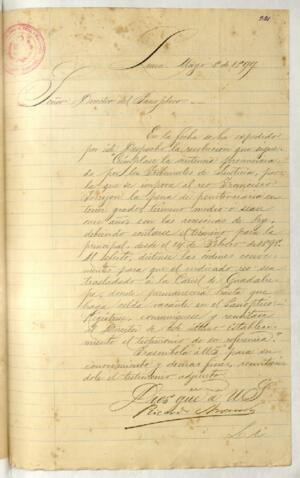 Lima Mayo 2 de 1899
Señor Director del Panóptico
En la fecha se ha expedido
por este Despacho la resolucion que sigue:
Cúmplase la sentencia pronunciada
por los Tribunales de Justicia, por
la que se impone al reo Francisco
la pena de penitenciaria en
tercer grado, término medio, ó sean
once años con las accesorias de ley,
debiendo contarse el término para la
principal, desde el 14 de Febrero de
Al efecto, dictense las ordenes conve-
nientes para que el indicado reo sea
trasladado á la Carcel de Guadalu-
pe, donde permanecerá hasta que
haya celda vacante en el Panóptico
Registrese, comuniquese y remitase
al Director de este último estableci-
miento el testimonio de su referencia.
Trascríbola á US. para su
conocimiento y demas fines, remitién-
dole el testimonio adjunto.
Dios gue á US.